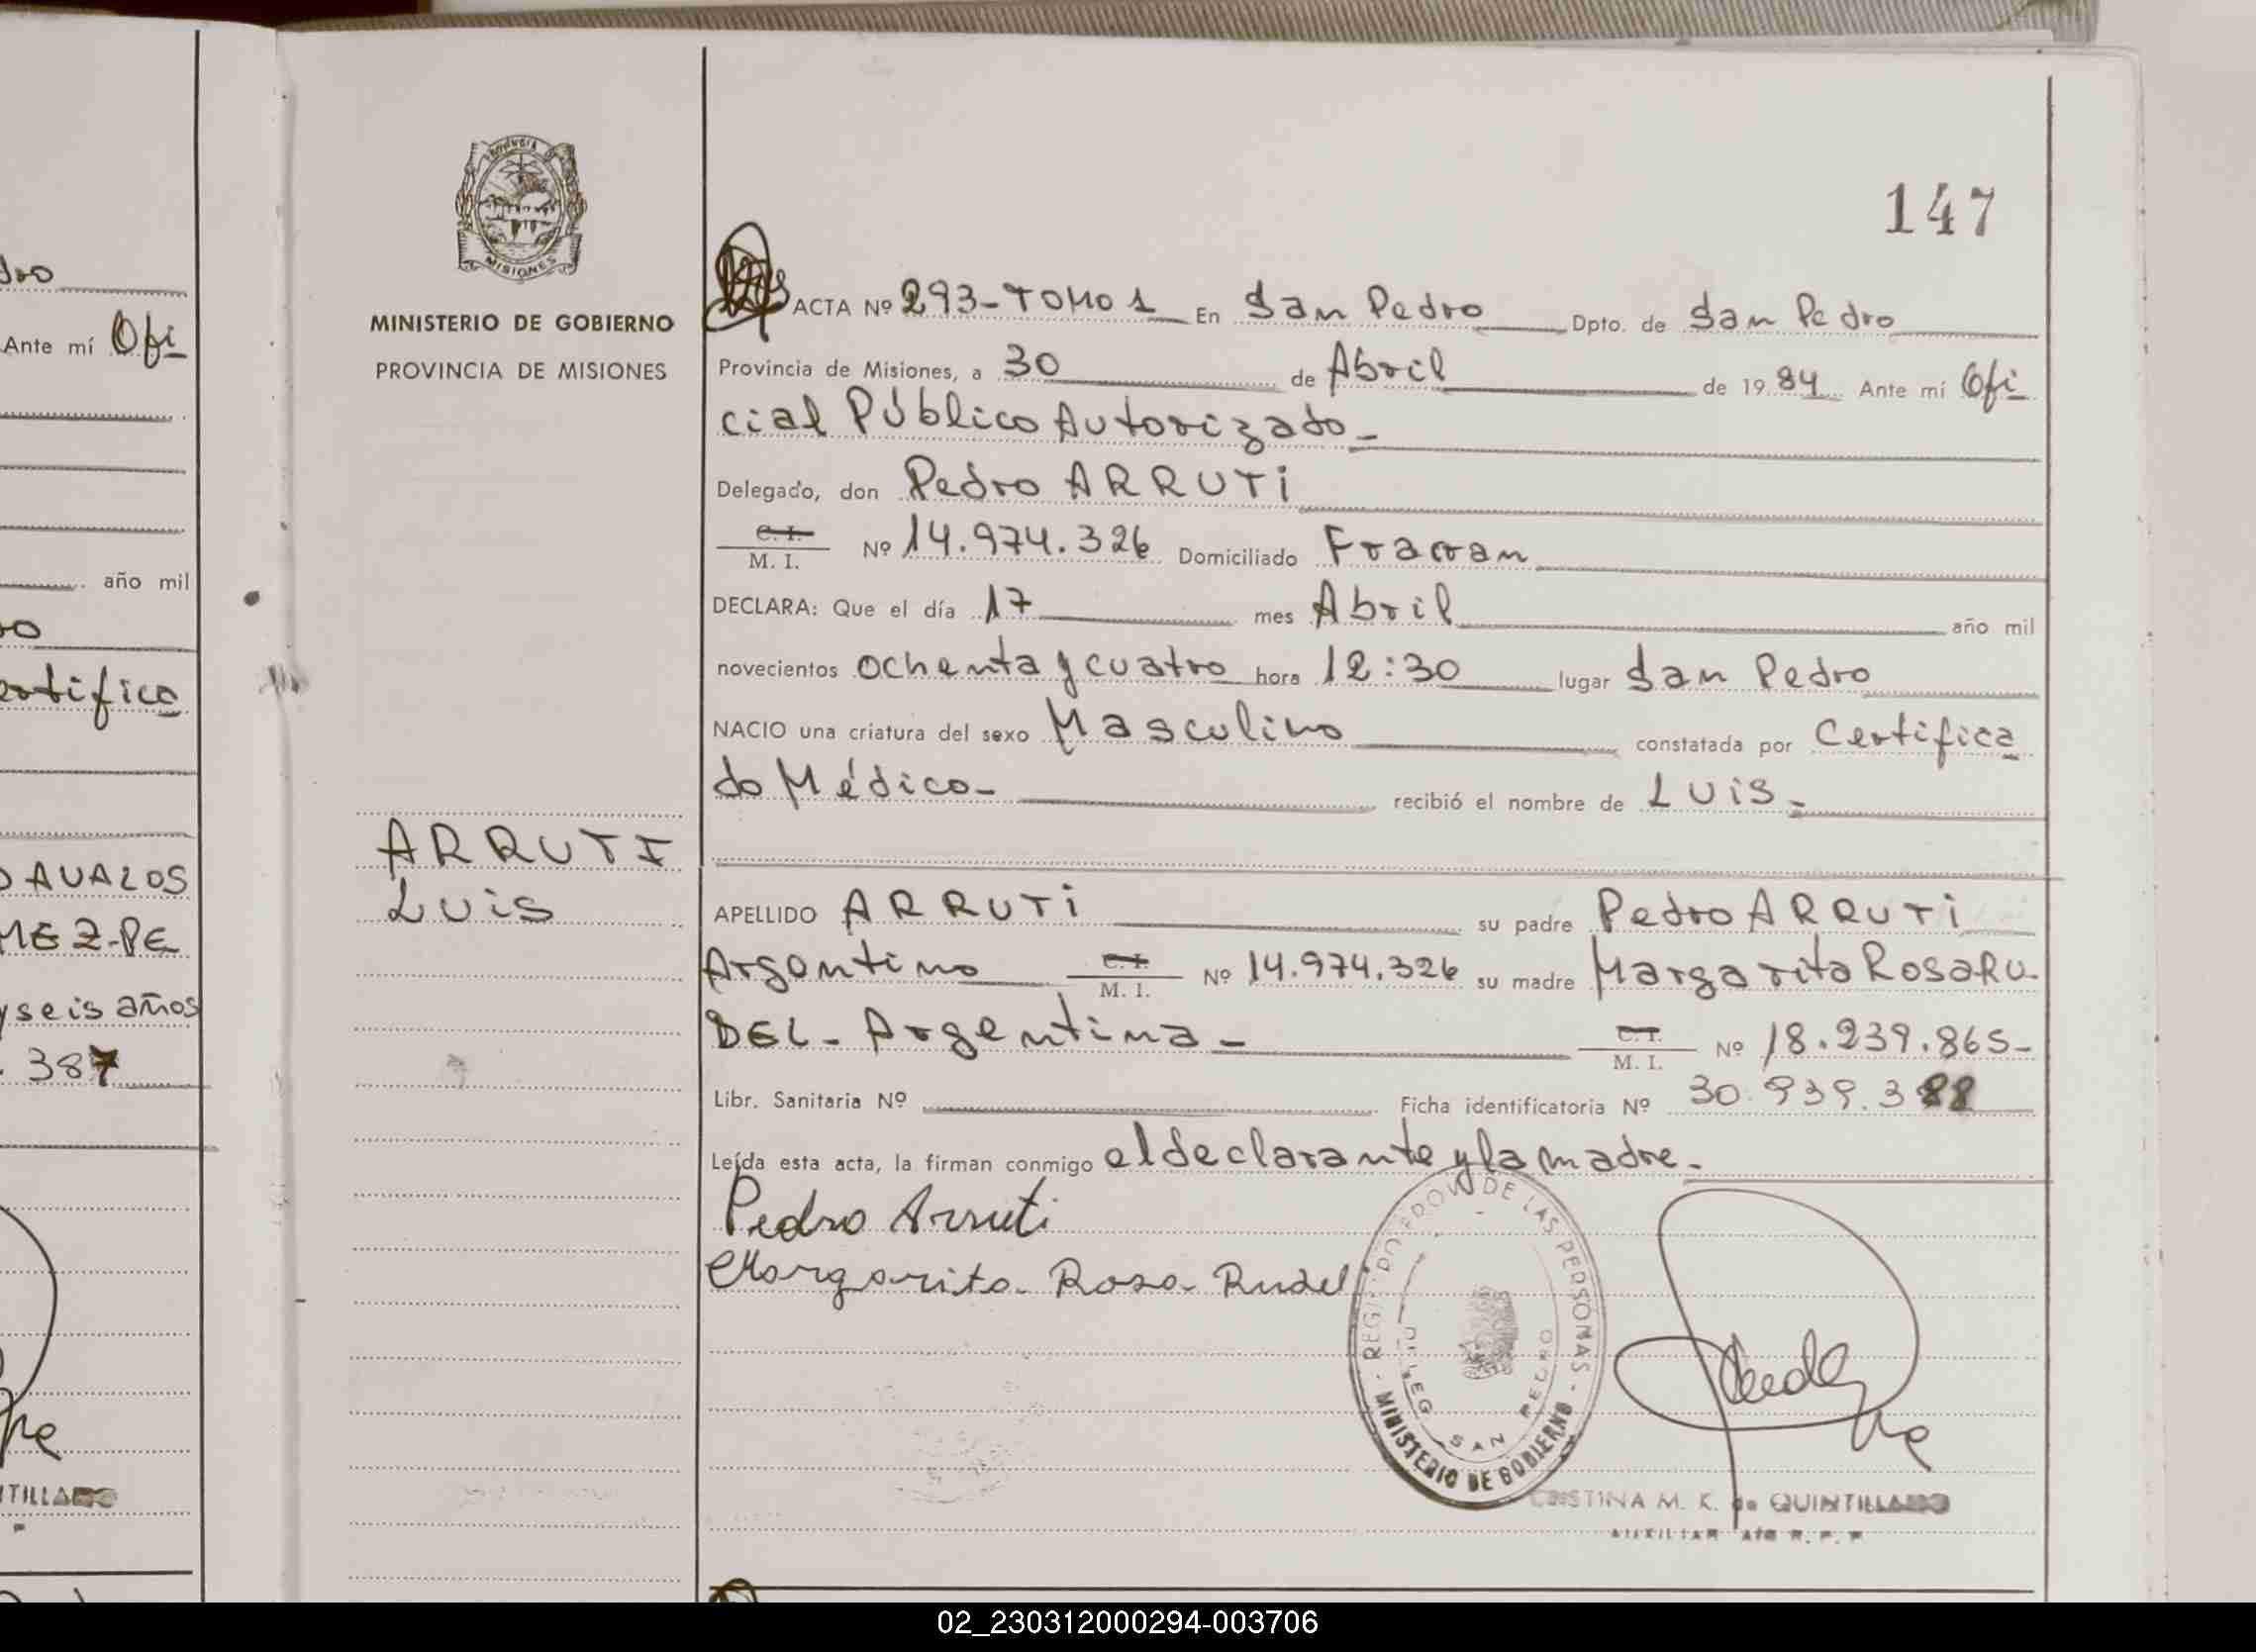 dro
Ante mí Ofi
año mil
ro
ertifica
DAVALOS
MEZ-DE
y seis años
. 387
PROVINCIA DE
MISIONES
MINISTERIO DE GOBIERNO
PROVINCIA DE MISIONES
ARRUTI
Luis
147
ACTA Nº 293-TOMO 1 En San Pedro Dpto. de San Pedro
Provincia de Misiones, a 30 de Abril de 1984 Ante mí Ofi
cial Público Autorizado-
Delegado, don Pedro ARRUTi
C. I.
M. I. Nº 14.974.326 Domiciliado Fracran
DECLARA: Que el día 17 mes Abril año mil
novecientos ochenta y cuatro hora 12:30 lugar San Pedro
NACIO una criatura del sexo Masculino constatada por Certifica
do Médico- recibió el nombre de LUiS-
APELLIDO ARRUTi su padre Pedro ARRUTi
Argentino C. I.
M. I. Nº 14.974.326 su madre Margarita Rosa RU-
DEL- Argentina- C. I.
M. I. Nº 18.239.865-
Libr. Sanitaria Nº Ficha identificatoria Nº 30.939.388
Leída esta acta, la firman conmigo el declarante y la madre.-
Pedro Arruti
Margarita Rosa Rudel
REGISTRO DE LAS PERSONAS - MINISTERIO DE GOBIERNO -
DELEG SAN PEDRO
CRISTINA M. K. de QUINTILLANO
AUXILIAR
TILLANO
02_230312000294-003706